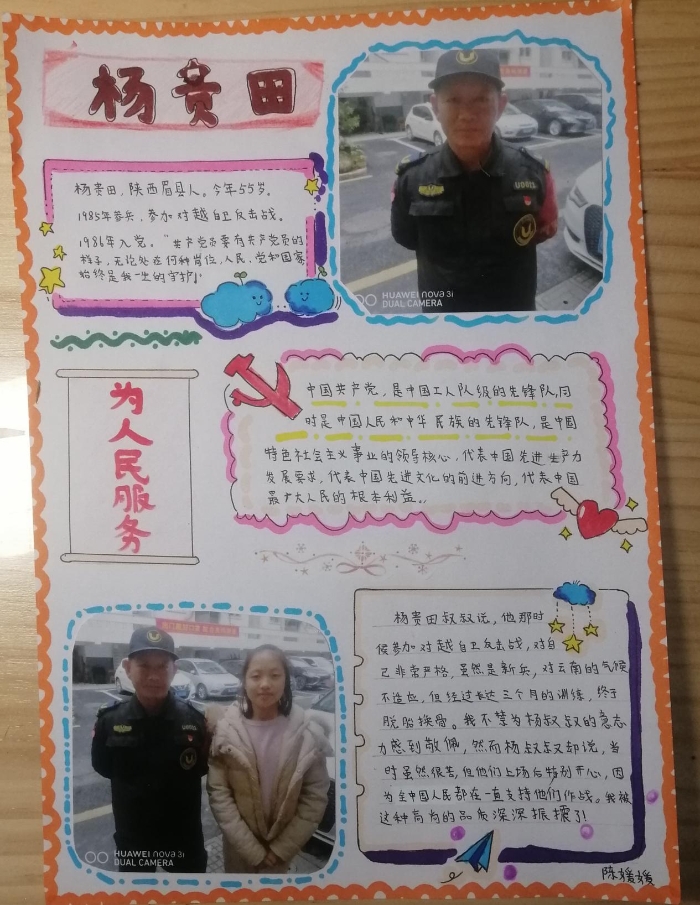 杨贵田
杨贵田,陕西眉县人。今年55岁。
1985年参兵,参加对越自卫反击战。
1986年入党。“共产党员要有共产党员的
样子,无论处在何种岗位,人民、党和国家
始终是我一生的守护”
HUAWEI nova 3i
DUAL CAMERA
为人民服务
中国共产党,是中国工人阶级的先锋队,同
时是中国人民和中华民族的先锋队,是中国
特色社会主义事业的领导核心,代表中国先进生产力
发展要求,代表中国先进文化的前进方向,代表中国
最广大人民的根本利益。
HUAWEI nova 3i
DUAL CAMERA
杨贵田叔叔说,他那时
候参加对越自卫反击战,对自
己非常严格,虽然是新兵,对云南的气候
不适应,但经过长达三个月的训练,终于
脱胎换骨。我不禁为杨叔叔的意志
力感到敬佩,然而杨叔叔却说,当
时虽然很苦,但他们上场后特别开心,因
为全中国人民都在一直支持他们作战。我被
这种高尚的品质深深振撼了!
陈媛媛